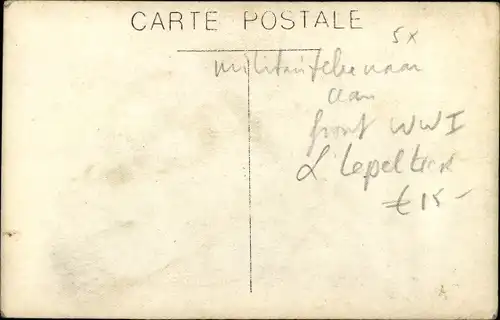 CARTE POSTALE
5x
aan
front WWI
L Lepeltier
€ 15-